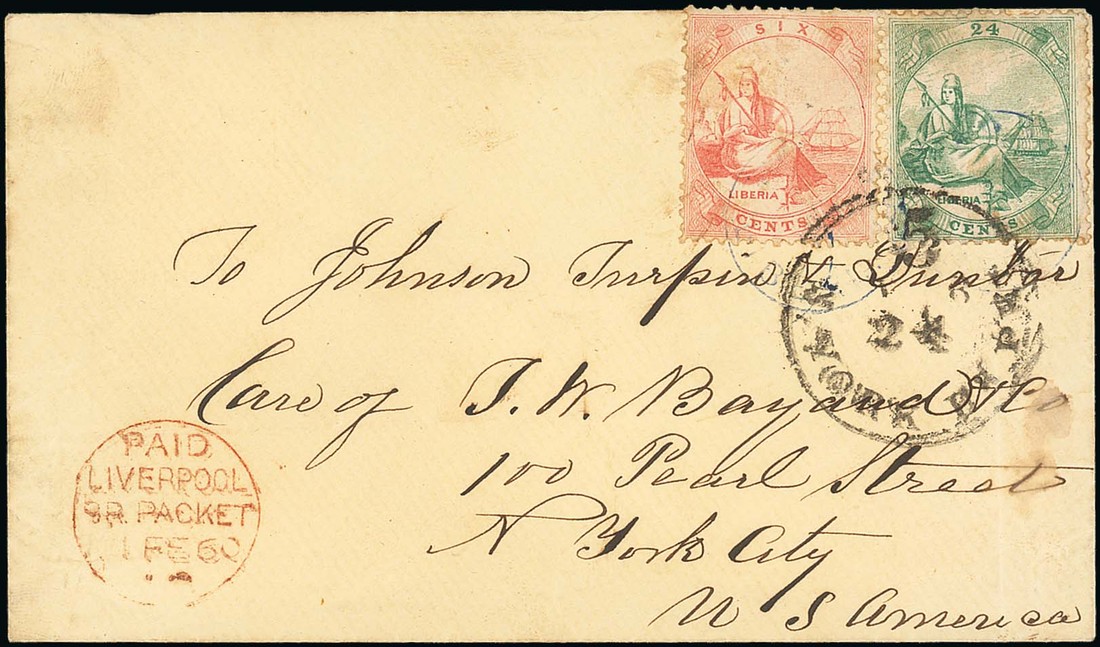 SIX
LIBERIA
CENTS
24
LIBERIA
CENTS
To Johnson Turpin & Dunbar
Care of J. W. Bayard & Co
100 Pearl Street
N York City
U S America
PAID
LIVERPOOL
BR. PACKET
1 FE 60
24